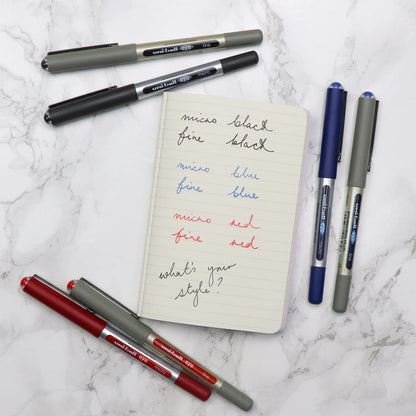 uni-ball eye fine
uni-ball eye micro
micro black
fine black
micro blue
fine blue
micro red
fine red
what's your
style?
uni-ball eye
uni-ball eye
uni-ball eye micro
uni-ball eye fine